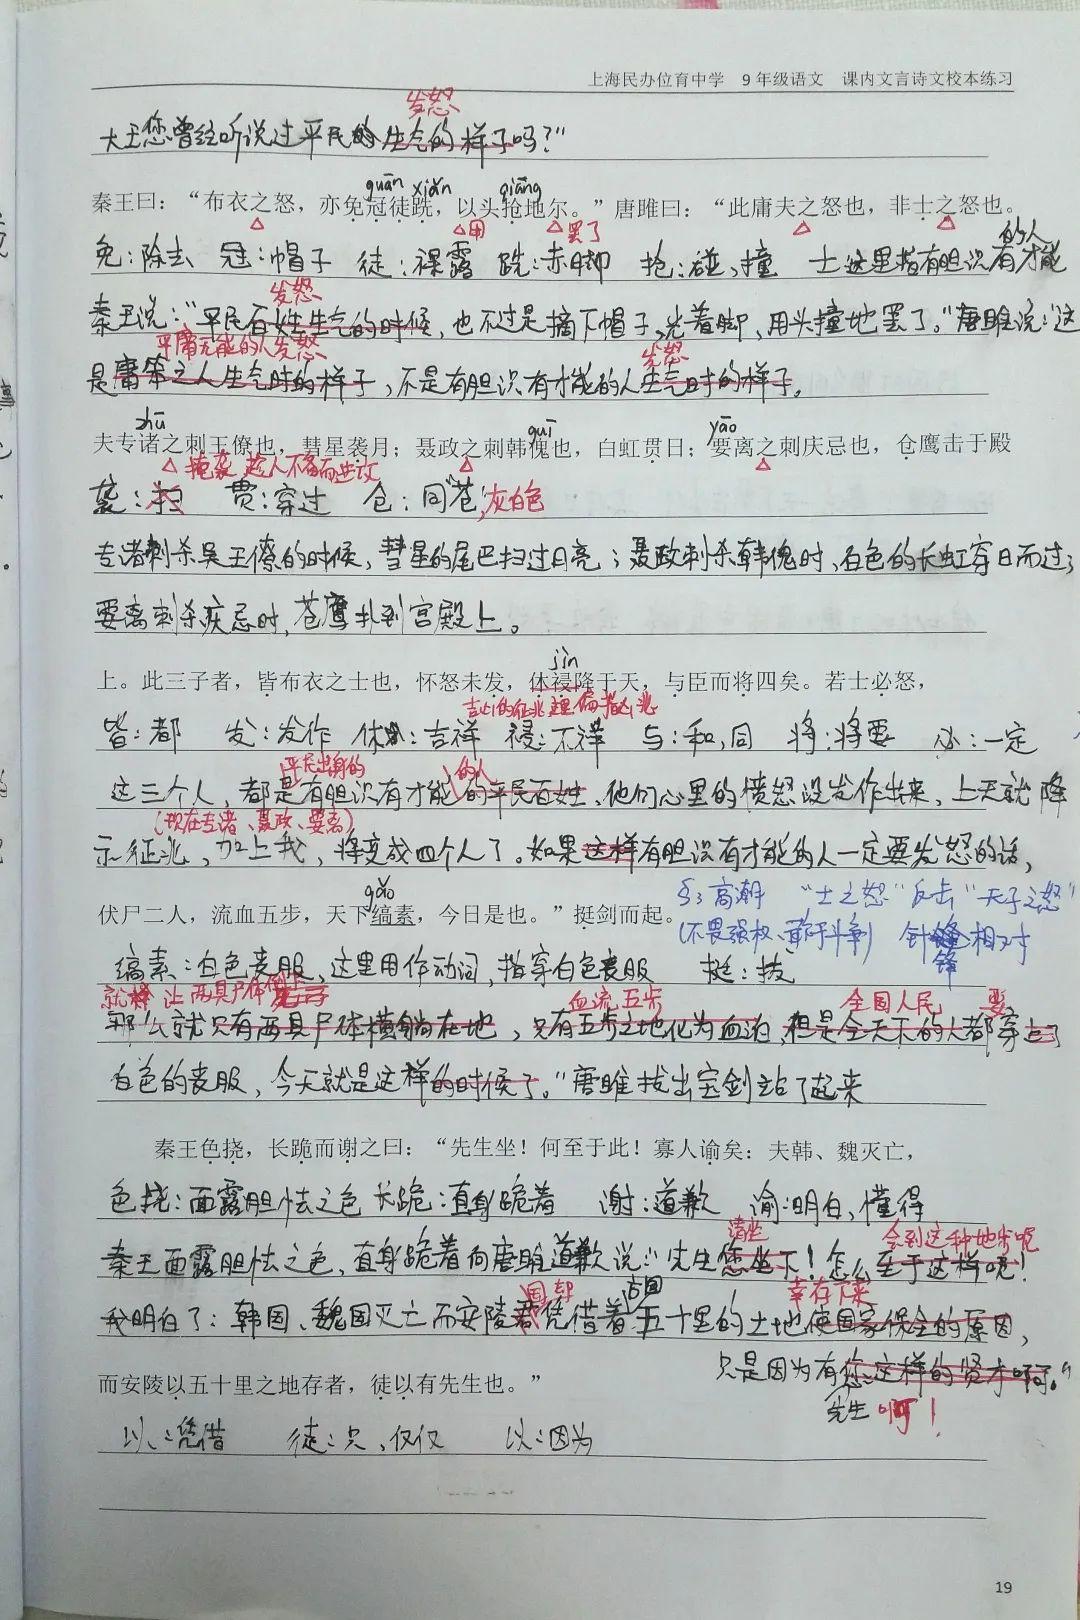 上海民办位育中学 9年级语文 课内文言诗文校本练习
发怒
大王您曾经听说过平民的生气的样子吗？"
guān xiǎn qiāng
秦王曰：“布衣之怒，亦免冠徒跣，以头抢地尔。”唐雎曰：“此庸夫之怒也，非士之怒也。
用 罢了 的人
免：除去 冠：帽子 徒：裸露 跣：赤脚 抢：碰，撞 士这里指有胆识有才能
发怒
秦王说："平民百姓生气的时候，也不过是摘下帽子，光着脚，用头撞地罢了。"唐雎说："这
平庸无能的人发怒 发怒
是庸笨之人生气时的样子，不是有胆识有才能的人生气时的样子。
zhū guī yāo
夫专诸之刺王僚也，彗星袭月；聂政之刺韩傀也，白虹贯日；要离之刺庆忌也，仓鹰击于殿
掩袭 趁人不备而进攻
袭：扫 贯：穿过 仓：同"苍"，灰白色
专诸刺杀吴王僚的时候，彗星的尾巴扫过月亮；聂政刺杀韩傀时，白色的长虹穿日而过；
要离刺杀庆忌时，苍鹰扑到宫殿上。
jìn
上。此三子者，皆布衣之士也，怀怒未发，休祲降于天，与臣而将四矣。若士必怒，
吉凶的征兆 这里偏指凶兆
皆：都 发：发作 休：吉祥 祲：不祥 与：和，同 将：将要 必：一定
平民出身的 的人
这三个人，都是有胆识有才能的平民百姓，他们心里的愤怒没发作出来，上天就降
(现在专诸、聂政、要离)
示征兆，加上我，将变成四个人了。如果这样有胆识有才能的人一定要发怒的话，
gǎo
伏尸二人，流血五步，天下缟素，今日是也。”挺剑而起。
§3高潮 "士之怒"反击"天子之怒"
(不畏强权、敢于斗争) 针锋相对
锋
缟素：白色丧服，这里用作动词，指穿白色丧服 挺：拔
就 让两具尸体倒下 血流五步 全国人民 要
那么就只有两具尸体横躺在地，只有五步之地化为血泊，但是全天下的人都穿上了
白色的丧服，今天就是这样的时候了。"唐雎拔出宝剑站了起来
秦王色挠，长跪而谢之曰：“先生坐！何至于此！寡人谕矣：夫韩、魏灭亡，
色挠：面露胆怯之色 长跪：直身跪着 谢：道歉 谕：明白，懂得
请坐 会到这种地步呢
秦王面露胆怯之色，直身跪着向唐雎道歉说："先生您坐下！怎么至于这样呢！
国却 方圆 幸存下来
我明白了：韩国、魏国灭亡而安陵君凭借着五十里的土地使国家保全的原因，
只是因为有您这样的贤才啊。"
而安陵以五十里之地存者，徒以有先生也。”
先生 啊！
以：凭借 徒：只，仅仅 以：因为
19